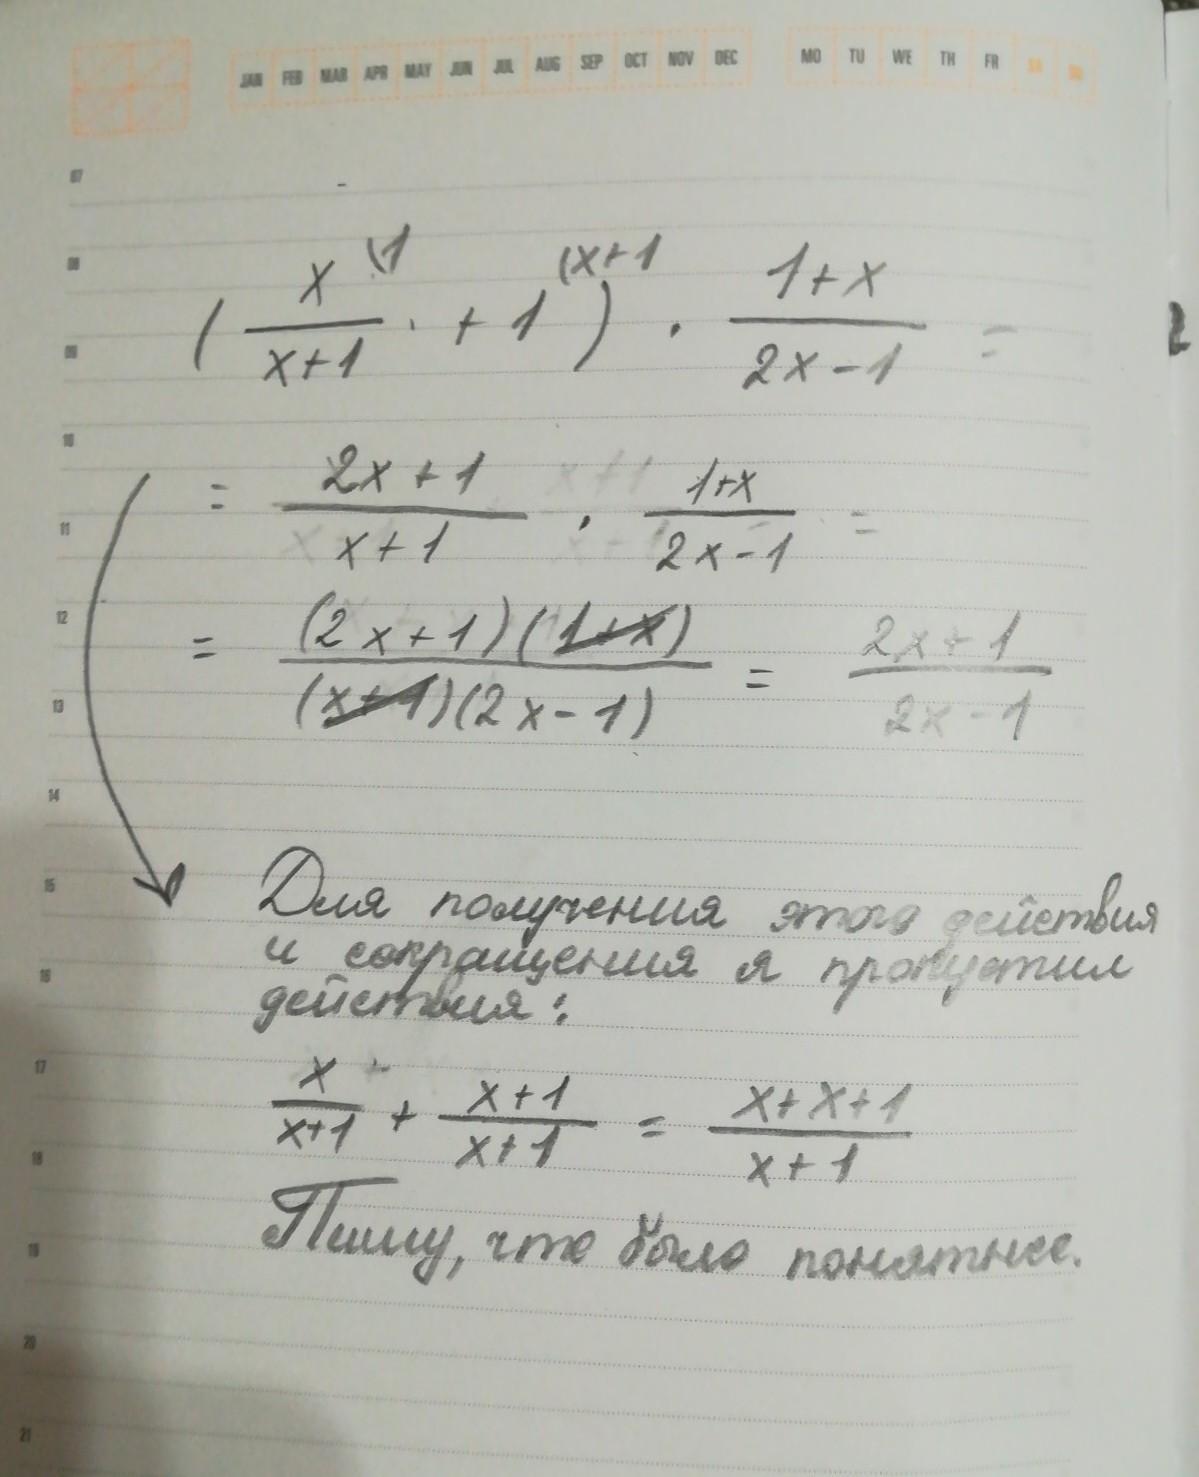 JAN FEB MAR APR MAY JUN JUL AUG SEP OCT NOV DEC MO TU WE TH FR SA SU
07
08
(x/(x+1) (1 · + 1 (x+1) · (1+x)/(2x-1) =
09
10
= (2x+1)/(x+1) · (1+x)/(2x-1) =
11
12
= (2x+1)(1+x)/(x+1)(2x-1) = (2x+1)/(2x-1)
13
14
15
Для получения этого действия
и сокращения я пропустил
16
действия:
17
x/(x+1) + (x+1)/(x+1) = (x+x+1)/(x+1)
18
Пишу, что было понятнее.
19
20
21
2